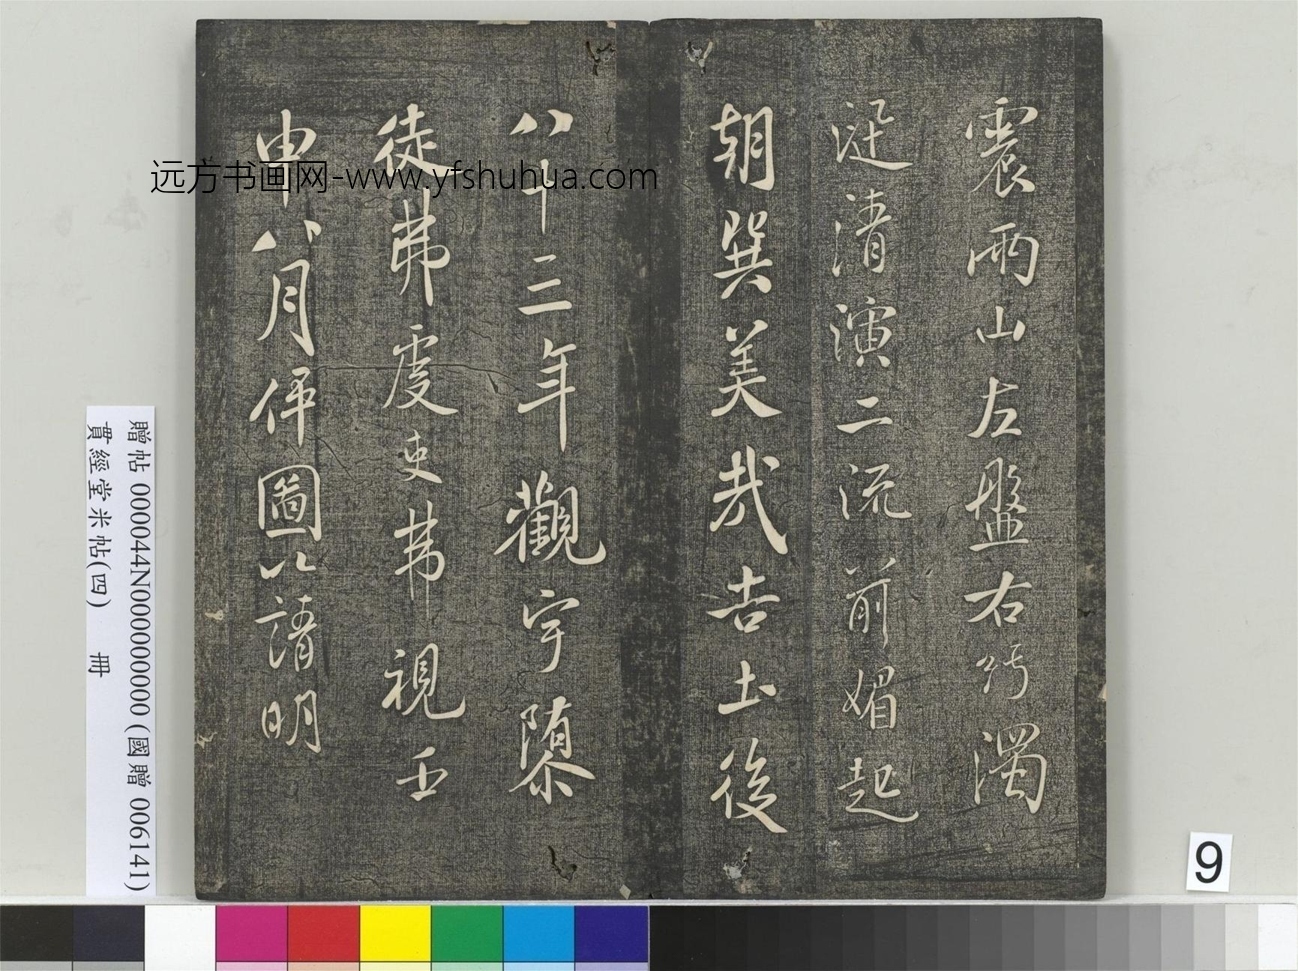 震雨山左盤右紆濁
清演二流前媚起
朝巽美哉吉土後
八十三年觀宇
徒弗虔吏芾視壬
申八月伻圖以請明
远方书画网-www.yfshuhua.com
贈帖 000044N000000000 (國贈 006141)
貫經堂米帖(四) 冊
9